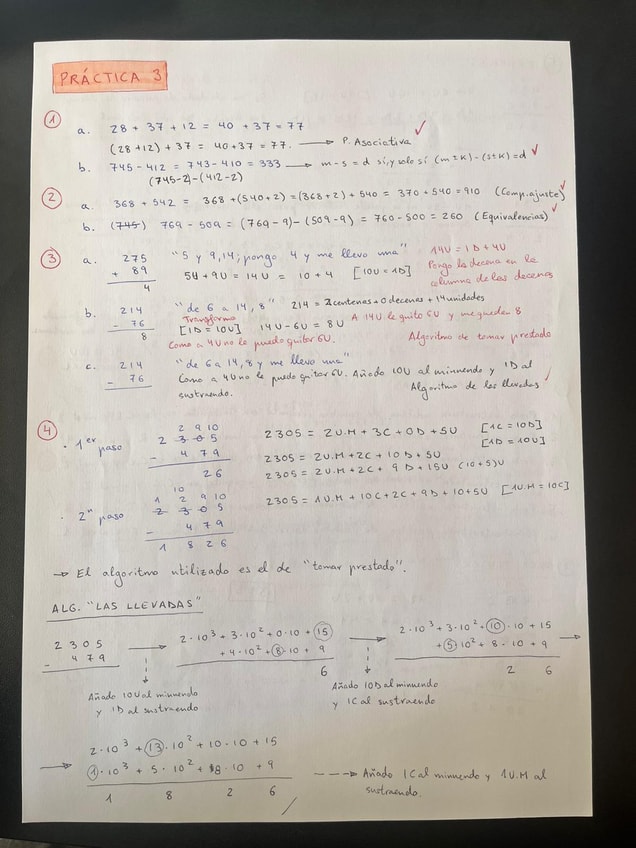 PRÁCTICA 3
① a. 28 + 37 + 12 = 40 + 37 = 77
(28+12) + 37 = 40+37 = 77. → P. Asociativa ✓
b. 745 - 412 = 743 - 410 = 333 → m - s = d si, y solo sí (m±k) - (s±k) = d ✓
(745-2) - (412-2)
② a. 368 + 542 = 368 + (540+2) = (368+2) + 540 = 370 + 540 = 910 (Comp. ajuste) ✓
b. (745) 769 - 509 = (769-9) - (509-9) = 760 - 500 = 260 (Equivalencias) ✓
③ a. 275 "5 y 9, 14; pongo 4 y me llevo una" 14U = 1D + 4U
+ 89 5U + 9U = 14U = 10 + 4 [10U = 1D] Pongo la decena en la
4 columna de las decenas
b. 214 "de 6 a 14, 8" 214 = 2centenas + 0 decenas + 14 unidades
- 76 Transformo [1D = 10U] 14U - 6U = 8U A 14U le quito 6U y me quedan 8
8 Como a 4U no le puedo quitar 6U. Algoritmo de tomar prestado
c. 214 "de 6 a 14, 8 y me llevo una"
- 76 Como a 4U no le puedo quitar 6U. Añado 10U al minuendo y 1D al
sustraendo. Algoritmo de las llevadas ✓
④ · 1er paso
2 9 10
2 3 0 5 2305 = 2U.M + 3C + 0D + 5U [1C = 10D]
- 4 7 9 2305 = 2U.M + 2C + 10D + 5U [1D = 10U]
2 6 2305 = 2U.M + 2C + 9D + 15U (10+5)U
· 2º paso
10
1 2 9 10
2 3 0 5 2305 = 1U.M + 10C + 2C + 9D + 10+5U [1U.M = 10C]
- 4 7 9
1 8 2 6
→ El algoritmo utilizado es el de "tomar prestado".
ALG. "LAS LLEVADAS"
2 3 0 5 → 2·10³ + 3·10² + 0·10 + 15 → 2·10³ + 3·10² + 10·10 + 15
- 4 7 9 + 4·10² + 8·10 + 9 + 5·10² + 8·10 + 9 →
6 2 6
Añado 10U al minuendo Añado 10D al minuendo
y 1D al sustraendo y 1C al sustraendo
2·10³ + 13·10² + 10·10 + 15
→ 1·10³ + 5·10² + 8·10 + 9 ---> Añado 1C al minuendo y 1U.M al
1 8 2 6 sustraendo.